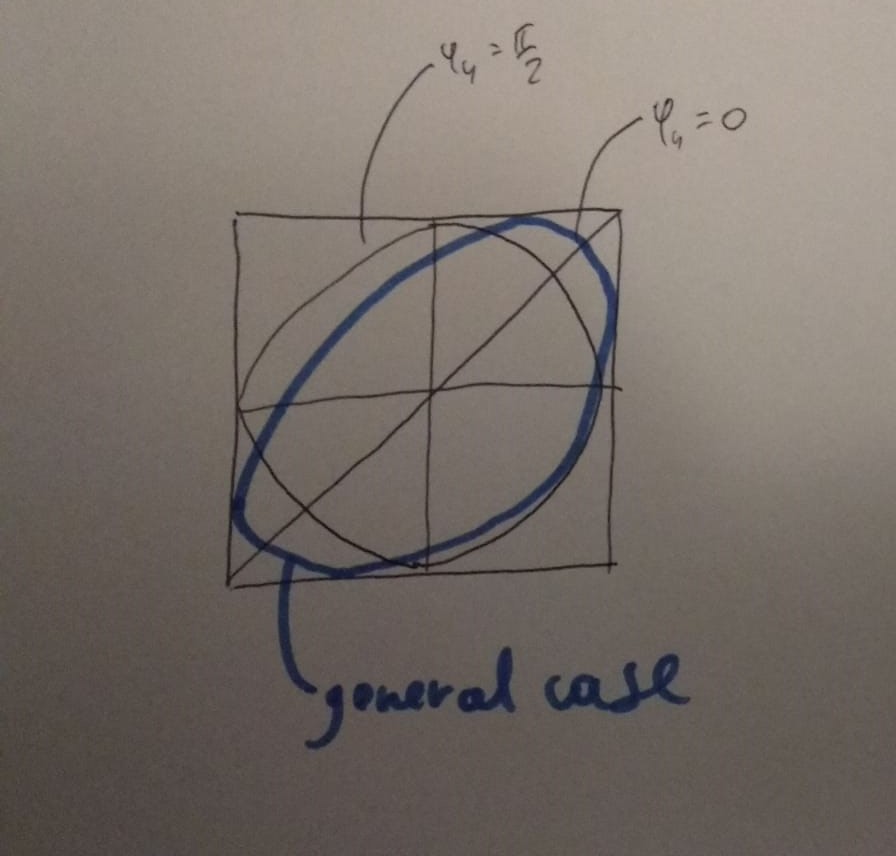 φ₄ = π/2
φ₄ = 0
general case